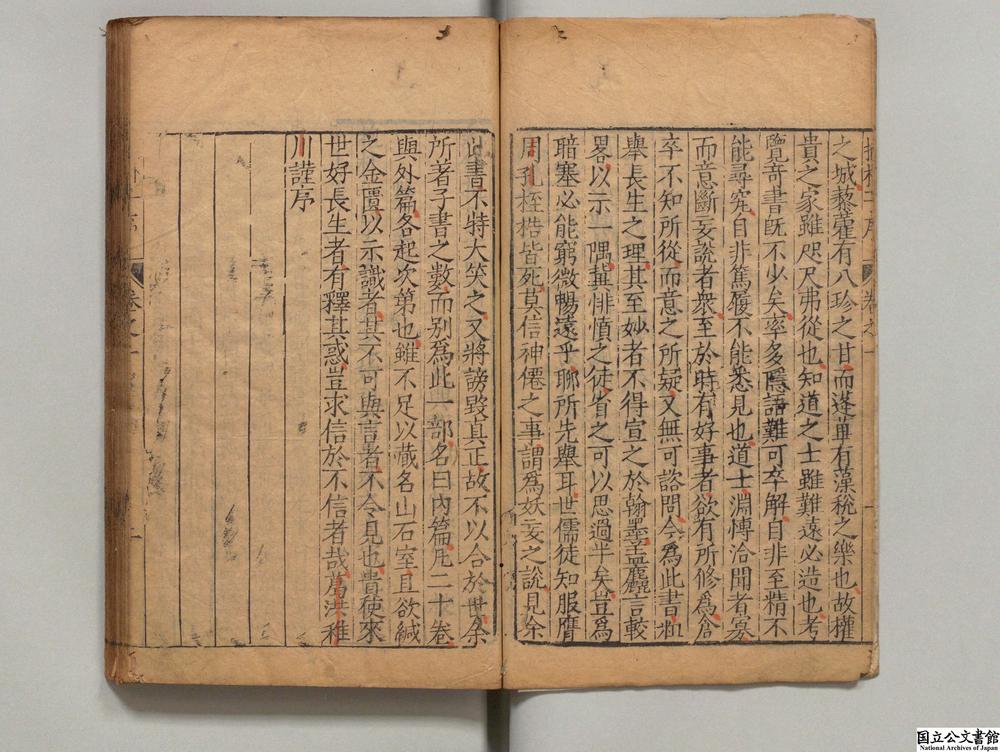 之城藜藿有八珍之甘而蓬蓽有藻梲之樂也故權
貴之家雖咫尺弗從也知道之士雖難遠必造也考
覽竒書旣不少矣率多隱語難可卒解自非至精不
能尋究自非篤履不能悉見也道士淵博洽聞者寡
而意斷妄說者衆至於時有好事者欲有所修爲倉
卒不知所從而意之所疑又無可諮問今爲此書粗
舉長生之理其至妙者不得宣之於翰墨盖麤言較
畧以示一隅冀悱憤之徒省之可以思過半矣豈爲
暗塞必能窮微暢遠乎聊所先舉耳世儒徒知服膺
周孔桎梏皆死莫信神僊之事謂爲妖妄之說見余
此書不特大笑之又將謗毀真正故不以合於世余
所著子書之數而别爲此一部名曰内篇凡二十卷
與外篇各起次第也雖不足以藏名山石室且欲緘
之金匱以示識者其不可與言者不令見也貴使來
世好長生者有釋其惑豈求信於不信者哉葛洪稚
川謹序
卷之一
国立公文書館
National Archives of Japan